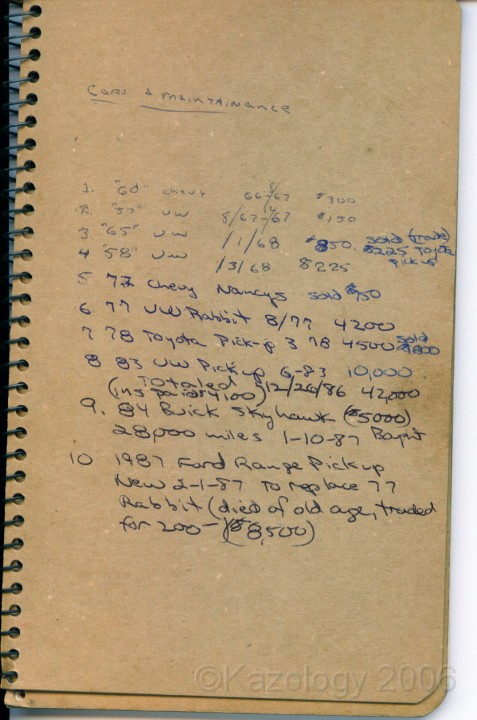 Cars & Maintainance
1. "60" Chevy 66-8/67 $300
2. "57" VW 8/67- /67 $150
3. "65" VW /1/68 $850. sold (trade)
4 "58" VW /3/68 $225 $225 Toyota pickup
5 72 Chevy Nancys sold $50
6. 77 VW Rabbit 8/77 4200
7 78 Toyota Pick-p 3 78 4500 sold $1800
8 83 VW Pickup 6-83 10,000
Totaled 12/26/86 42,000
(ins paid $4100)
9. 84 Buick Skyhawk ($5000)
28,000 miles 1-10-87 Bought
10 1987 Ford Range Pickup
New 2-1-87 To replace 77
Rabbit (died of old age, traded
for 200- ($8,500)
©Kazology 2006